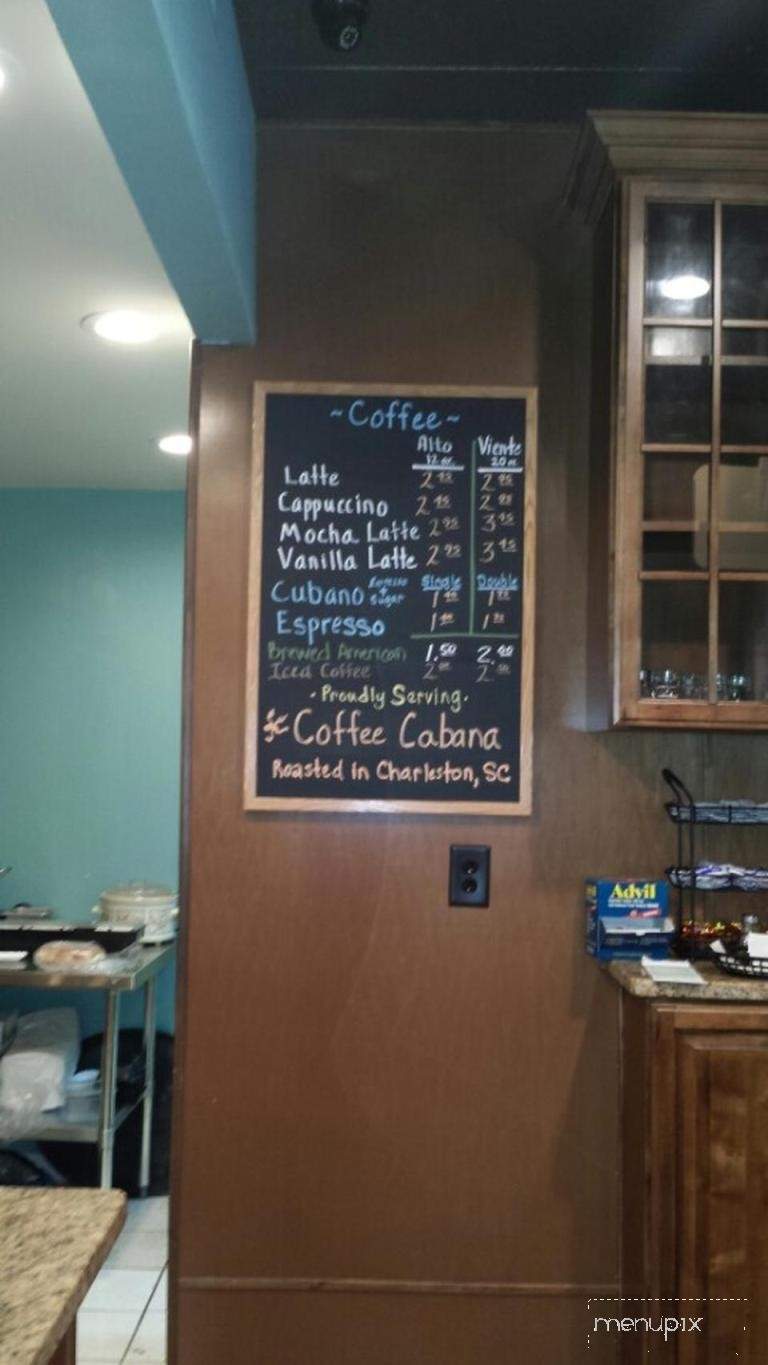 ~Coffee~
Alto Viente
12 oz. 20 oz.
Latte 2.45 2.95
Cappuccino 2.45 2.95
Mocha Latte 2.95 3.45
Vanilla Latte 2.95 3.45
Cubano Espresso + sugar Single Double
Espresso
Brewed American 1.50 2.00
Iced Coffee 2.00 2.50
·Proudly Serving·
Coffee Cabana
Roasted in Charleston, SC
Advil
menupix